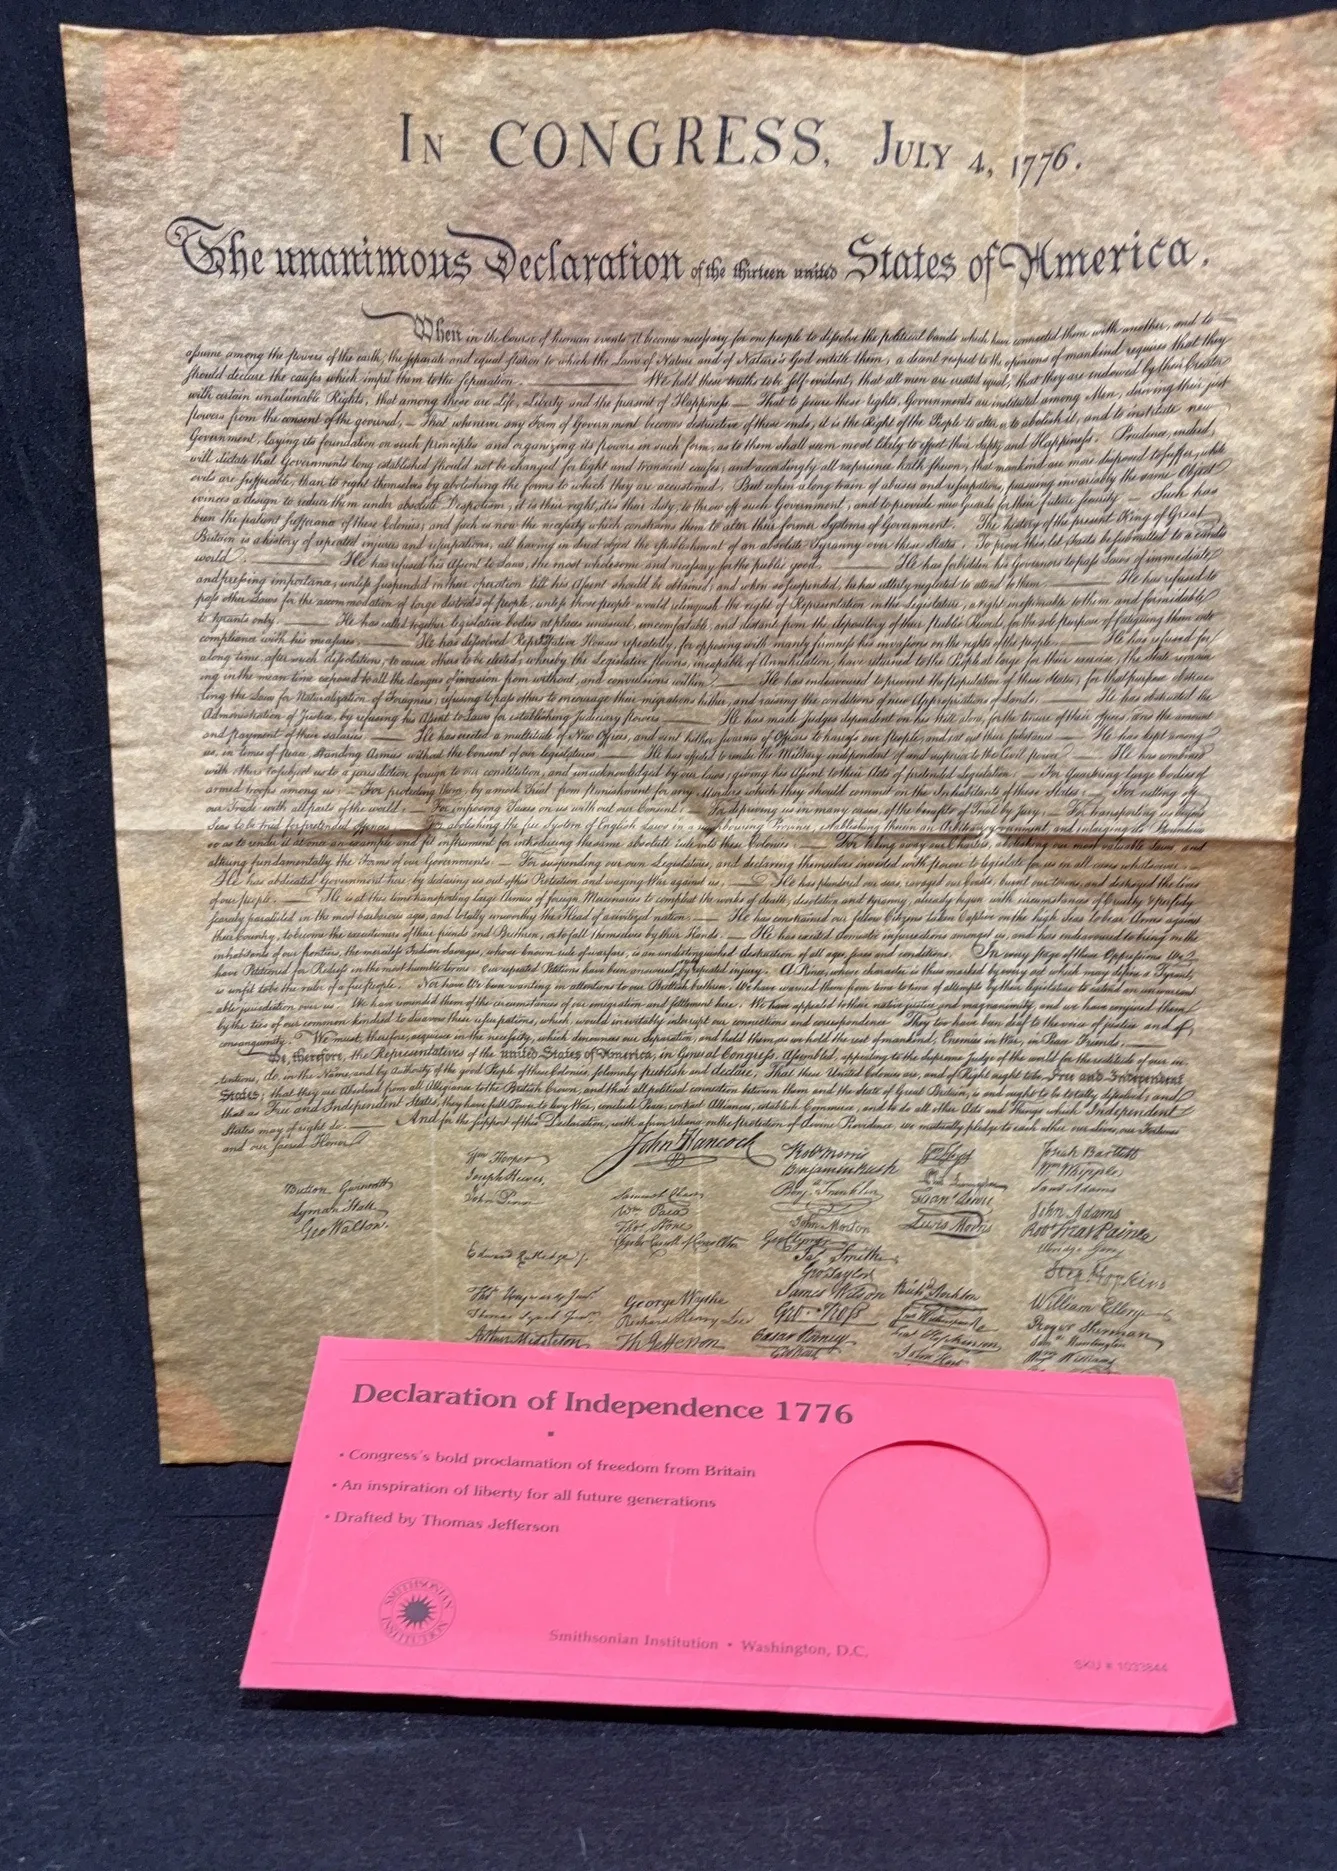 In CONGRESS, July 4, 1776.
The unanimous Declaration of the thirteen united States of America.
When in the Course of human events it becomes necessary for one people to dissolve the political bands which have connected them with another, and to
assume among the powers of the earth, the separate and equal station to which the Laws of Nature and of Nature's God entitle them, a decent respect to the opinions of mankind requires that they
should declare the causes which impel them to the separation. We hold these truths to be self-evident, that all men are created equal, that they are endowed by their Creator
with certain unalienable Rights, that among these are Life, Liberty and the pursuit of Happiness — That to secure these rights, Governments are instituted among Men, deriving their just
powers from the consent of the governed, — That whenever any Form of Government becomes destructive of these ends, it is the Right of the People to alter or to abolish it, and to institute new
Government, laying its foundation on such principles and organizing its powers in such form, as to them shall seem most likely to effect their Safety and Happiness. Prudence, indeed,
will dictate that Governments long established should not be changed for light and transient causes; and accordingly all experience hath shewn, that mankind are more disposed to suffer, while
evils are sufferable, than to right themselves by abolishing the forms to which they are accustomed. But when a long train of abuses and usurpations, pursuing invariably the same Object
evinces a design to reduce them under absolute Despotism, it is their right, it is their duty, to throw off such Government, and to provide new Guards for their future security — Such has
been the patient sufferance of these Colonies; and such is now the necessity which constrains them to alter their former Systems of Government. The history of the present King of Great
Britain is a history of repeated injuries and usurpations, all having in direct object the establishment of an absolute Tyranny over these States. To prove this, let Facts be submitted to a candid
world. He has refused his Assent to Laws, the most wholesome and necessary for the public good. He has forbidden his Governors to pass Laws of immediate
and pressing importance, unless suspended in their operation till his Assent should be obtained; and when so suspended, he has utterly neglected to attend to them. He has refused to
pass other Laws for the accommodation of large districts of people, unless those people would relinquish the right of Representation in the Legislature, a right inestimable to them and formidable
to tyrants only. He has called together legislative bodies at places unusual, uncomfortable, and distant from the depository of their Public Records, for the sole purpose of fatiguing them into
compliance with his measures. He has dissolved Representative Houses repeatedly, for opposing with manly firmness his invasions on the rights of the people. He has refused for
a long time, after such dissolutions, to cause others to be elected; whereby the Legislative powers, incapable of Annihilation, have returned to the People at large for their exercise; the State remain
ing in the mean time exposed to all the dangers of invasion from without, and convulsions within. He has endeavoured to prevent the population of these States; for that purpose obstruc
ting the Laws for Naturalization of Foreigners; refusing to pass others to encourage their migrations hither, and raising the conditions of new Appropriations of Lands. He has obstructed the
Administration of Justice, by refusing his Assent to Laws for establishing Judiciary powers. He has made Judges dependent on his Will alone, for the tenure of their offices, and the amount
and payment of their salaries. He has erected a multitude of New Offices, and sent hither swarms of Officers to harrass our people, and eat out their substance. He has kept among
us, in times of peace, Standing Armies without the Consent of our legislatures. He has affected to render the Military independent of and superior to the Civil power. He has combined
with others to subject us to a jurisdiction foreign to our constitution, and unacknowledged by our laws; giving his Assent to their Acts of pretended Legislation: — For Quartering large bodies of
armed troops among us: — For protecting them, by a mock Trial, from punishment for any Murders which they should commit on the Inhabitants of these States: — For cutting off
our Trade with all parts of the world: — For imposing Taxes on us without our Consent: — For depriving us in many cases, of the benefits of Trial by Jury: — For transporting us beyond
Seas to be tried for pretended offences — For abolishing the free System of English Laws in a neighbouring Province, establishing therein an Arbitrary government, and enlarging its Boundaries
so as to render it at once an example and fit instrument for introducing the same absolute rule into these Colonies: — For taking away our Charters, abolishing our most valuable Laws, and
altering fundamentally the Forms of our Governments: — For suspending our own Legislatures, and declaring themselves invested with power to legislate for us in all cases whatsoever. —
He has abdicated Government here, by declaring us out of his Protection and waging War against us. — He has plundered our seas, ravaged our Coasts, burnt our towns, and destroyed the lives
of our people. — He is at this time transporting large Armies of foreign Mercenaries to compleat the works of death, desolation and tyranny, already begun with circumstances of Cruelty & perfidy
scarcely paralleled in the most barbarous ages, and totally unworthy the Head of a civilized nation. — He has constrained our fellow Citizens taken Captive on the high Seas to bear Arms against
their Country, to become the executioners of their friends and Brethren, or to fall themselves by their Hands. — He has excited domestic insurrections amongst us, and has endeavoured to bring on the
inhabitants of our frontiers, the merciless Indian Savages, whose known rule of warfare, is an undistinguished destruction of all ages, sexes and conditions. In every stage of these Oppressions We
have Petitioned for Redress in the most humble terms: Our repeated Petitions have been answered only by repeated injury. A Prince, whose character is thus marked by every act which may define a Tyrant,
is unfit to be the ruler of a free people. Nor have We been wanting in attentions to our Brittish brethren. We have warned them from time to time of attempts by their legislature to extend an unwarrant
able jurisdiction over us. We have reminded them of the circumstances of our emigration and settlement here. We have appealed to their native justice and magnanimity, and we have conjured them
by the ties of our common kindred to disavow these usurpations, which, would inevitably interrupt our connections and correspondence They too have been deaf to the voice of justice and of
consanguinity. We must, therefore, acquiesce in the necessity, which denounces our Separation, and hold them, as we hold the rest of mankind, Enemies in War, in Peace Friends. —
We, therefore, the Representatives of the united States of America, in General Congress, Assembled, appealing to the Supreme Judge of the world for the rectitude of our in
tentions, do, in the Name, and by Authority of the good People of these Colonies, solemnly publish and declare, That these United Colonies are, and of Right ought to be Free and Independent
States; that they are Absolved from all Allegiance to the British Crown, and that all political connection between them and the State of Great Britain, is and ought to be totally dissolved; and
that as Free and Independent States, they have full Power to levy War, conclude Peace, contract Alliances, establish Commerce, and to do all other Acts and Things which Independent
States may of right do. — And for the support of this Declaration, with a firm reliance on the protection of divine Providence, we mutually pledge to each other our Lives, our Fortunes
and our sacred Honor.
John Hancock
Button Gwinnett
Lyman Hall
Geo Walton.
Wm Hooper
Joseph Hewes,
John Penn
Edward Rutledge
Thos Heyward Junr.
Thomas Lynch Junr.
Arthur Middleton
Samuel Chase
Wm Paca
Thos Stone
Charles Carroll of Carrollton
George Wythe
Richard Henry Lee
Th Jefferson
Robt Morris
Benjamin Rush
Benja Franklin
John Morton
Geo Clymer
Jas Smith
Geo Taylor
James Wilson
Geo. Ross
Caesar Rodney
Geo Read
Wm Floyd
Phil Livingston
Frans Lewis
Lewis Morris
Richd Stockton
Jno Witherspoon
Fras Hopkinson
John Hart
Josiah Bartlett
Wm Whipple
Saml Adams
John Adams
Robt Treat Paine
Elbridge Gerry
Step Hopkins
William Ellery
Roger Sherman
Saml Huntington
Wm Williams
Declaration of Independence 1776
• Congress's bold proclamation of freedom from Britain
• An inspiration of liberty for all future generations
• Drafted by Thomas Jefferson
SMITHSONIAN INSTITUTION
Smithsonian Institution • Washington, D.C.
SKU # 1033844